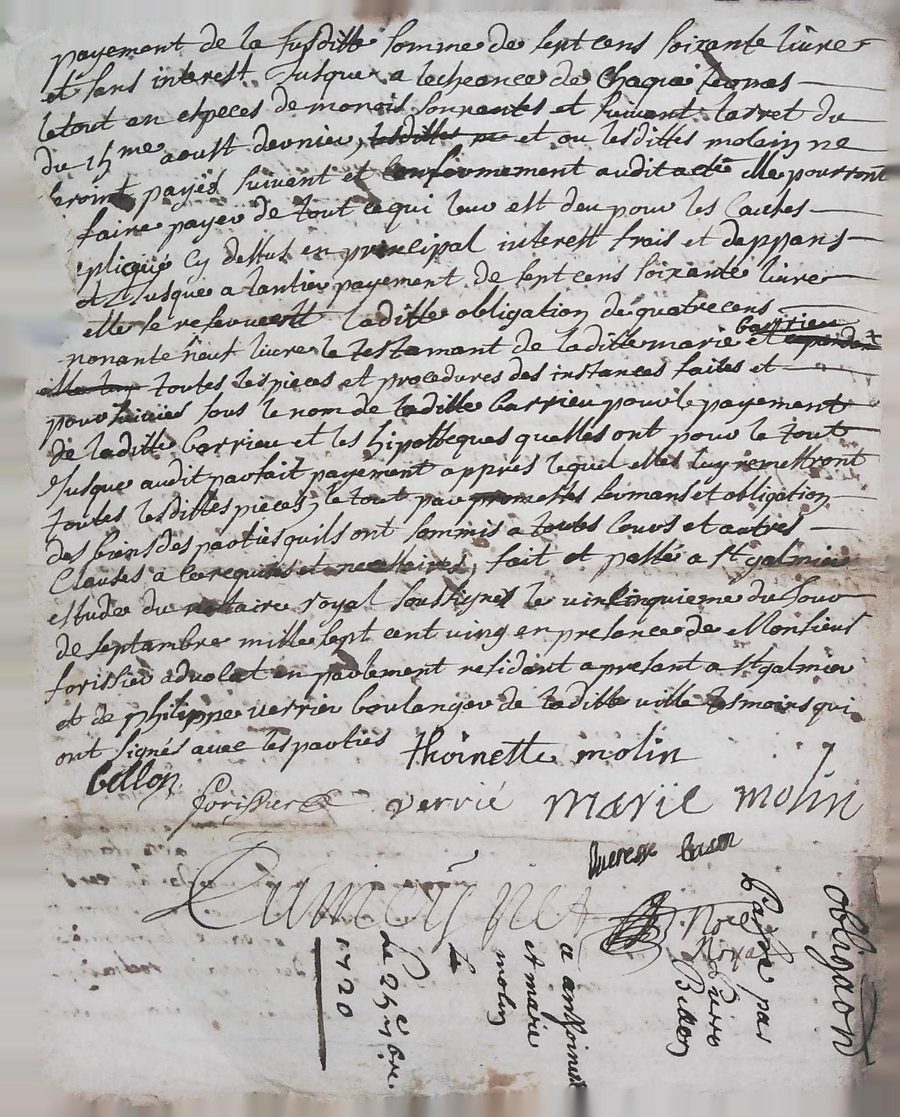 payement de la susditte somme de sept cens soixante livres
et sans interest Jusque a lecheance de Chaque
le tout en especes de monois courantes et suivent larret du
du 15me aoust dernier, et ou lesdittes molin ne
seroint payés suivent et conformement audit acte elle pourront
faire payer de tout ce qui leur est deu pour les Causes
espliqué Cy dessus en principal interest frais et deppans
et Jusque a lantier payement de sept cens soixante livre
elle se reservent laditte obligation de quatre cens
nonante neuf livre le testamant de laditte marie barrieu et
toutes les pieces et procedures des instances faites et
poursuivies sous le nom de laditte barrieu pour le payement
de laditte barrieu et les hipotheques quelles ont pour le tout
Jusque audit parfait payement appres lequel elles luy remettront
toutes lesdittes pieces, le tout par promesses sermans et obligation
des biens des parties quils ont sommis a toutes Cours et autres
Clauses a ce requises et necessaires, fait et passé a St galmier
estude du nottaire royal soussigné le vincinquieme du Jour
de septambre mille sept cent ving en presance de Monsieur
forissier advocat en parlement residant a presant a St galmier
et de philippe verrier boulanger de laditte ville tesmoins qui
ont signés avec les parties thoinette molin
billon
forissier verrié marie molin
Dumeynet
obligaon
Passée par
Pierre
Billon
a anthoinette
et marie
molin
Le 25e 7bre.
1720